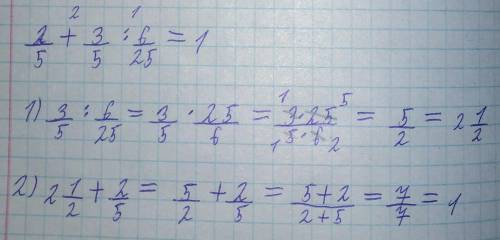 2/5 +² 3/5 :¹ 6/25 = 1
1) 3/5 : 6/25 = 3/5 · 25/6 = ¹3·25⁵/₁5·6₂ = 5/2 = 2 1/2
2) 2 1/2 + 2/5 = 5/2 + 2/5 = 5+2/2+5 = 7/7 = 1